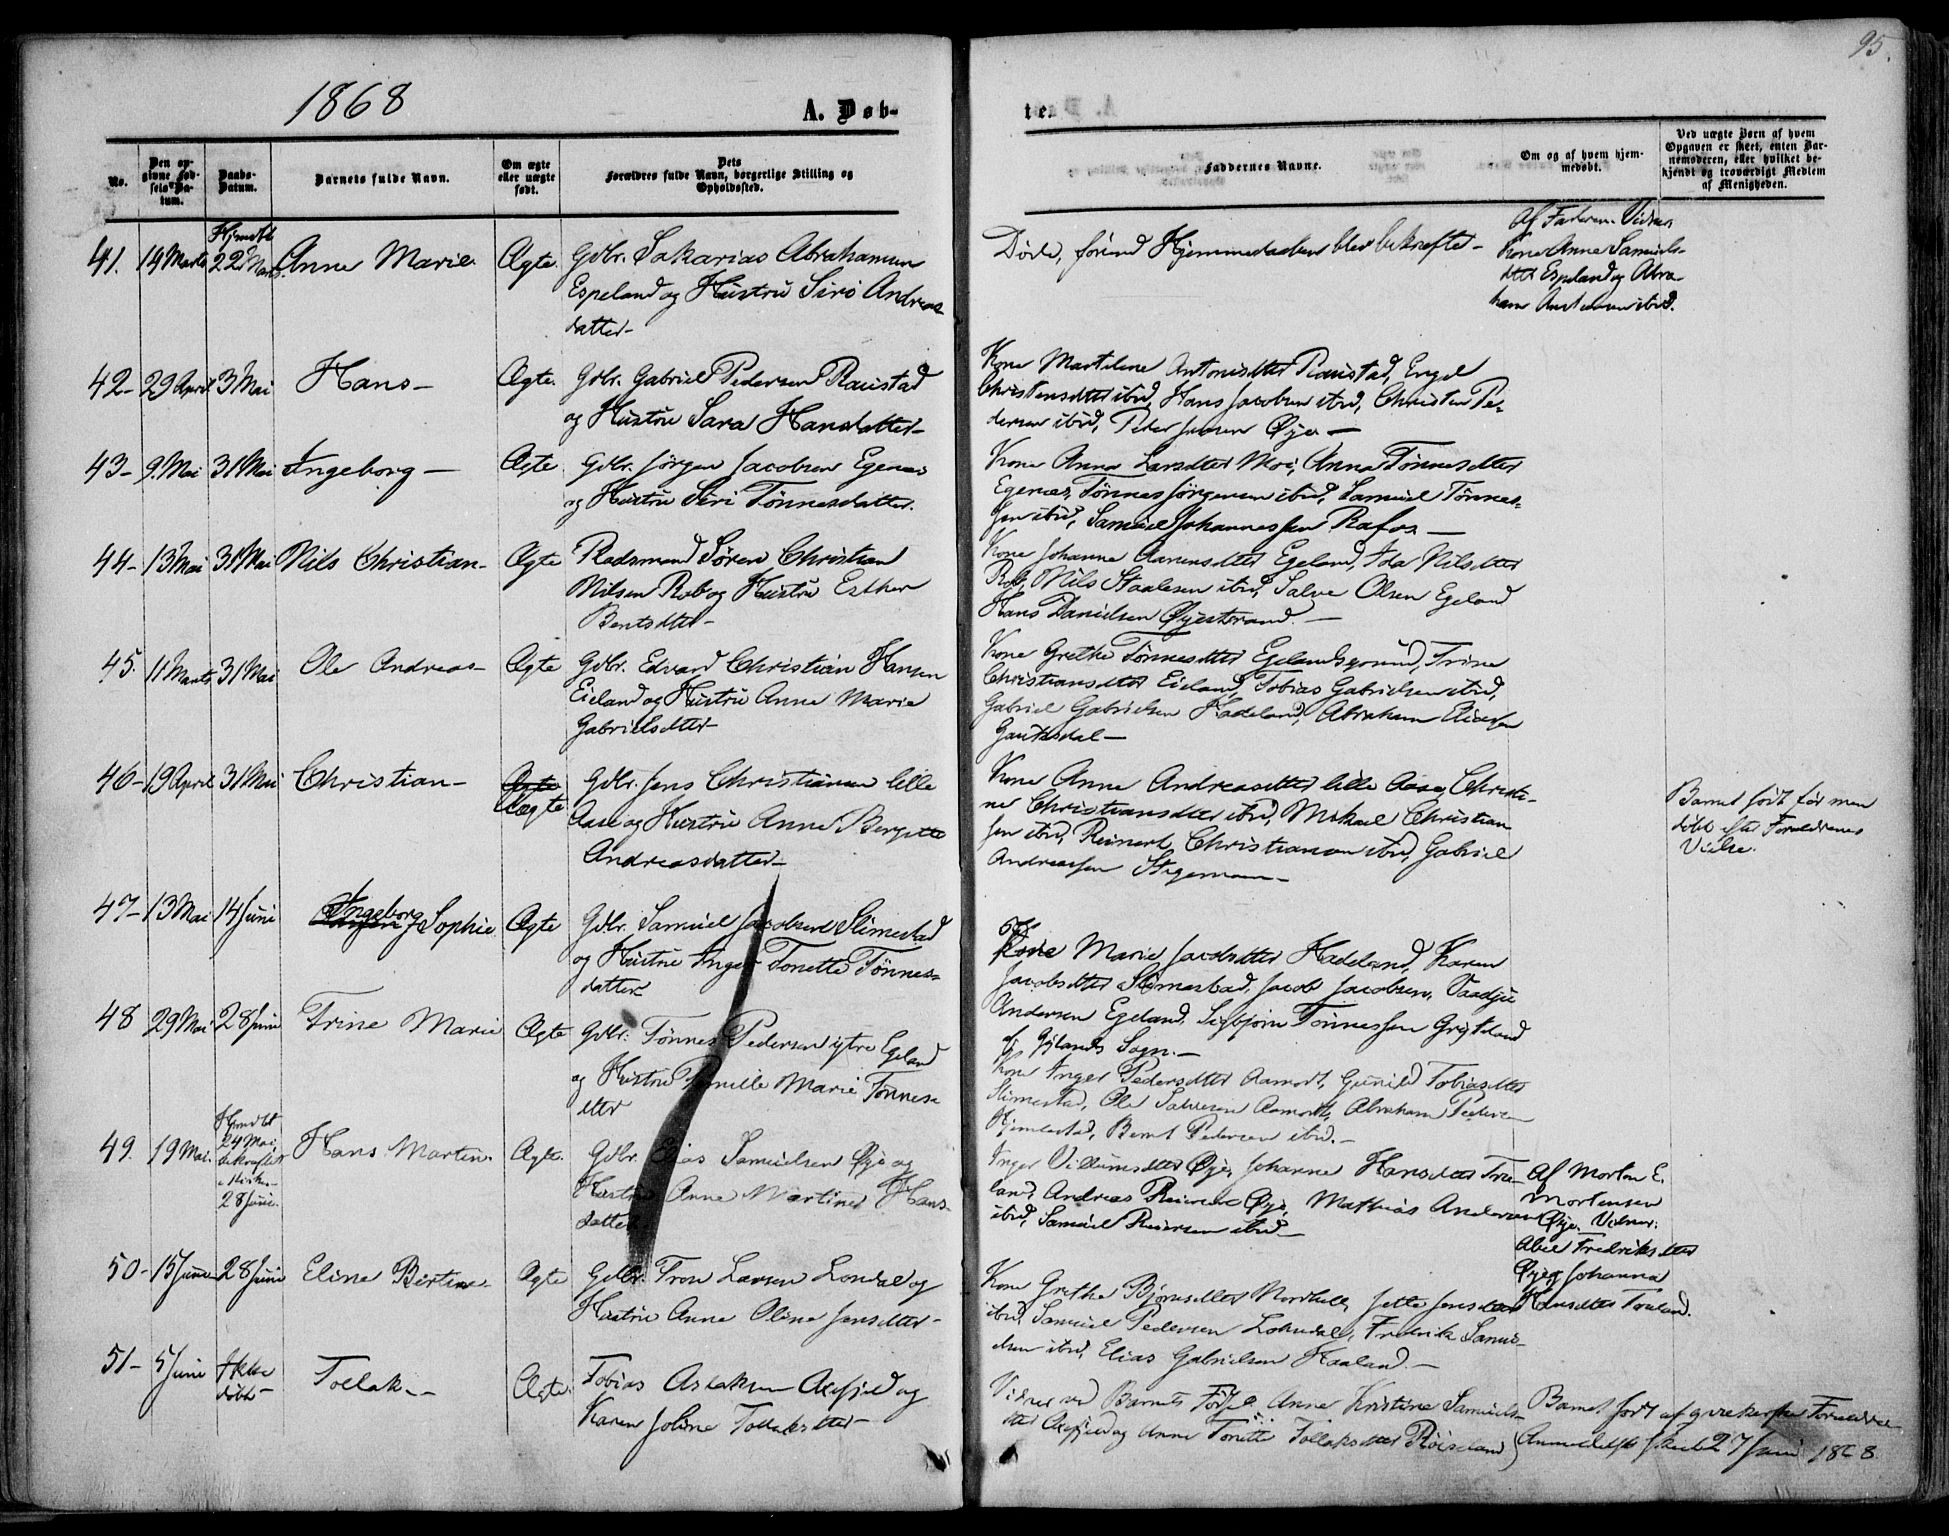 95.
1868
A. Døb-
te.
No.
Den op-
givne Fød-
sels Da-
tum.
Daabs-
Datum.
Barnets fulde Navn.
Om ægte
eller uægte
født.
Dets
Forældres fulde Navn, borgerlige Stilling og
Opholdssted.
Faddernes Navne.
Om og af hvem hjem-
medøbt.
Ved uægte Børn af hvem
Opgaven er skeet, enten Bar-
nemoderen, eller hvilket be-
kjendt og troværdigt Medlem
af Menigheden.
41. 19 Marts Hjmdbt 22 Marts Anne Marie Ægte. Gdbr. Sakarias Abrahamsen
Espeland og Hustru Siri Andreas-
datter-
Døde, førend Hjemmedaaben blev bekræftet-
Af Faderen. Vidner,
Kone Anne Samuels-
dtter Espeland og Abra-
ham ibid.
42- 29 April 3 Mai Hans- Ægte. Gdbr. Gabriel Pedersen Raustad
og Hustru Sara Hansdatter-
Kone Martilene Antonisdtter Raustad, Engel
Christensdtter ibid, Hans Jacobsen ibid, Christen Pe-
dersen ibid, Peder Jensen Øye-
43- 9. Mai 31 Mai Ingeborg- Ægte. Gdbr. Jørgen Jacobsen Egenes
og Hustru Siri Tønnesdatter.
Kone Anna Larsdtter Moi, Anna Tønnesdtter
Egenæs, Tønnes Jørgensen ibid, Samuel Tønnes-
sen ibid, Samuel Johannessen Rafos-
44- 13 Mai 31 Mai Nils Christian- Ægte Rodsmand Søren Christian
Nilsen Rob og Hustru Esther
Bentsdtter-
Kone Johanne Aanensdtter Egeland, Ida Nilsdtter
Rob, Nils Staalesen ibid, Salve Olsen Egeland
Hans Danielsen Øyestrand.-
45. 11 Marts 31 Mai Ole Andreas- Ægte Gdbr. Edvard Christian Hansen
Eieland og Hustru Anne Marie
Gabrielsdtter
Kone Grethe Tønnesdtter Egelandsgrund, Trine
Christiansdtter Eieland, Tobias Gabrielsen ibid,
Gabriel Gabrielsen Hadeland, Abraham Eliesen
Gautesdal-
46- 19 April 31 Mai Christian- Ægte Uægte Gdbr. Jens Christiansen lille
Aase og Hustru Anne Bergitte
Andreasdatter-
Kone Anne Andreasdtter lille Aase, Christi-
ne Christiansdtter ibid, Mikael Christian
sen ibid, Reinert Christiansen ibid, Gabriel
Andreassen Stegemoen-
Barnet født før men
døbt efter Forældrenes
Vielse.
47- 13 Mai 14 Juni Ingeborg Sophie Ægte Gdbr. Samuel Jacobsen Slimestad
og Hustru Inger Tonette Tønnes-
datter
Marie Jacobsdtter Hadeland, Karen
Jacobsdtter Slimestad, Jacob Jacobsen, Vaadjue
Andersen Egeland, Sigbjørn Tønnessen
af Gylands Sogn.-
48 29 Mai 28 Juni Trine Marie Ægte Gdbr. Tønnes Pedersen ytre Egeland
og Hustru Tomille Marie Tønnes-
dtter
Kone Inger Pedersdtter Aamodt, Gunild Tobiasdtter
Slimestad, Ole Salvesen Aamodt, Abraham Pedersen
Slimestad, Bernt Pedersen ibid.-
49. 19 Mai. Hjmdbt 24 Mai, bekræftet i Kirken 28 Juni. Hans Martin. Ægte. Gdbr. Elias Samuelsen Øye og
Hustru Anne Martine Hans-
datter
Inger Villumsdtter Øye, Johanne Hansdtter Tru-
land, Andreas Reiersen Øye, Mathias Andersen
ibid, Samuel Reiersen ibid-
Af Morten E.
Mortensen
Øye. Vidner:
Abel Fredriksdtter
Øye og Johanna
Hansdtter Truland.
50- 15 Juni 28 Juni Eline Bertine- Ægte Gdbr. Tron Larsen Londal og
Hustru Anne Oline Jensdtter-
Kone Grethe Bjørnsdtter Nordhelle, Jette Jensdtter
ibid, Samuel Pedersen Londal, Fredrik Samu-
elsen ibid, Elias Gabrielsen Haaland.-
51- 5 Juni Ikke døbt- Tollak- Ægte. Tobias Aslaksen Axefjeld og
Karen Joline Tollaksdtter-
Vidner ved Barnets Fødsel Anne Kristine Samuels-
dtter Axefjeld og Anne Tonette Tollaksdtter Røiseland
Barnet født af qvækerske Forældre
Anmeldelse skeet 27 Juni 1868.